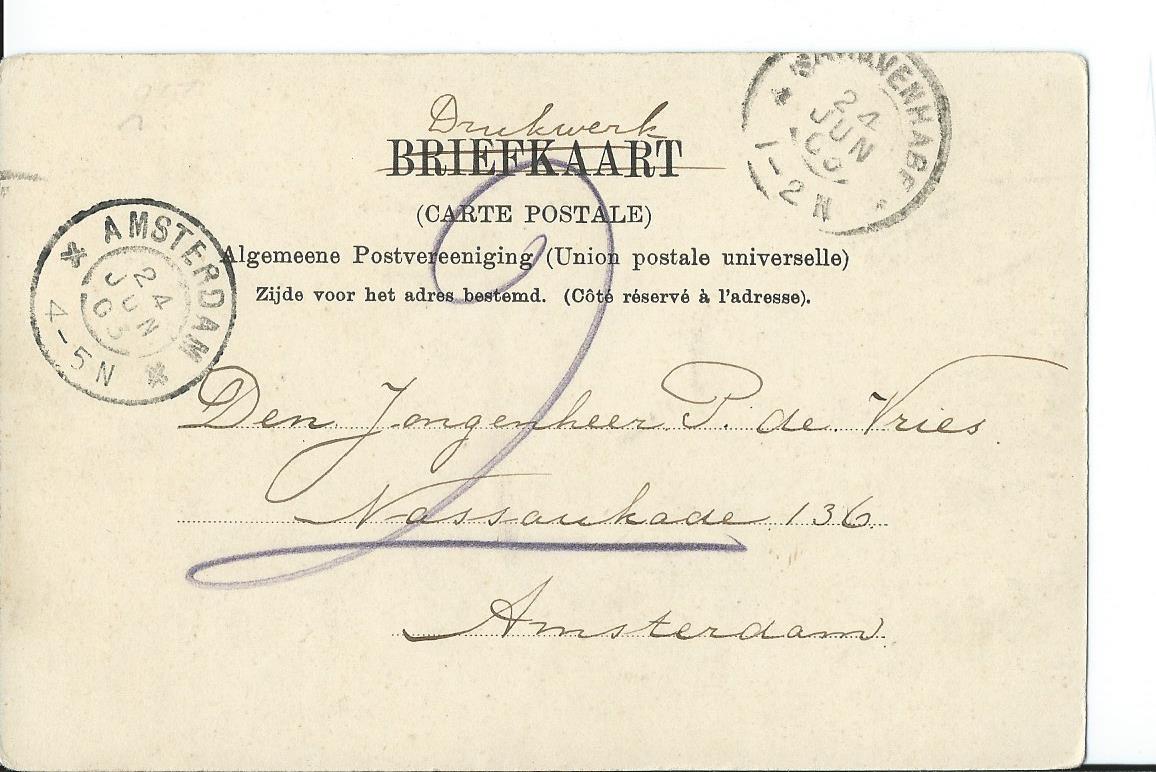 Drukwerk
BRIEFKAART
(CARTE POSTALE)
Algemeene Postvereeniging (Union postale universelle)
Zijde voor het adres bestemd. (Côté réservé à l'adresse).
'SGRAVENHAGE
24
JUN
1-2 N
AMSTERDAM
24
JUN
03
4-5 N
2
Den Jongenheer P. de Vries
Nassaukade 136
Amsterdam